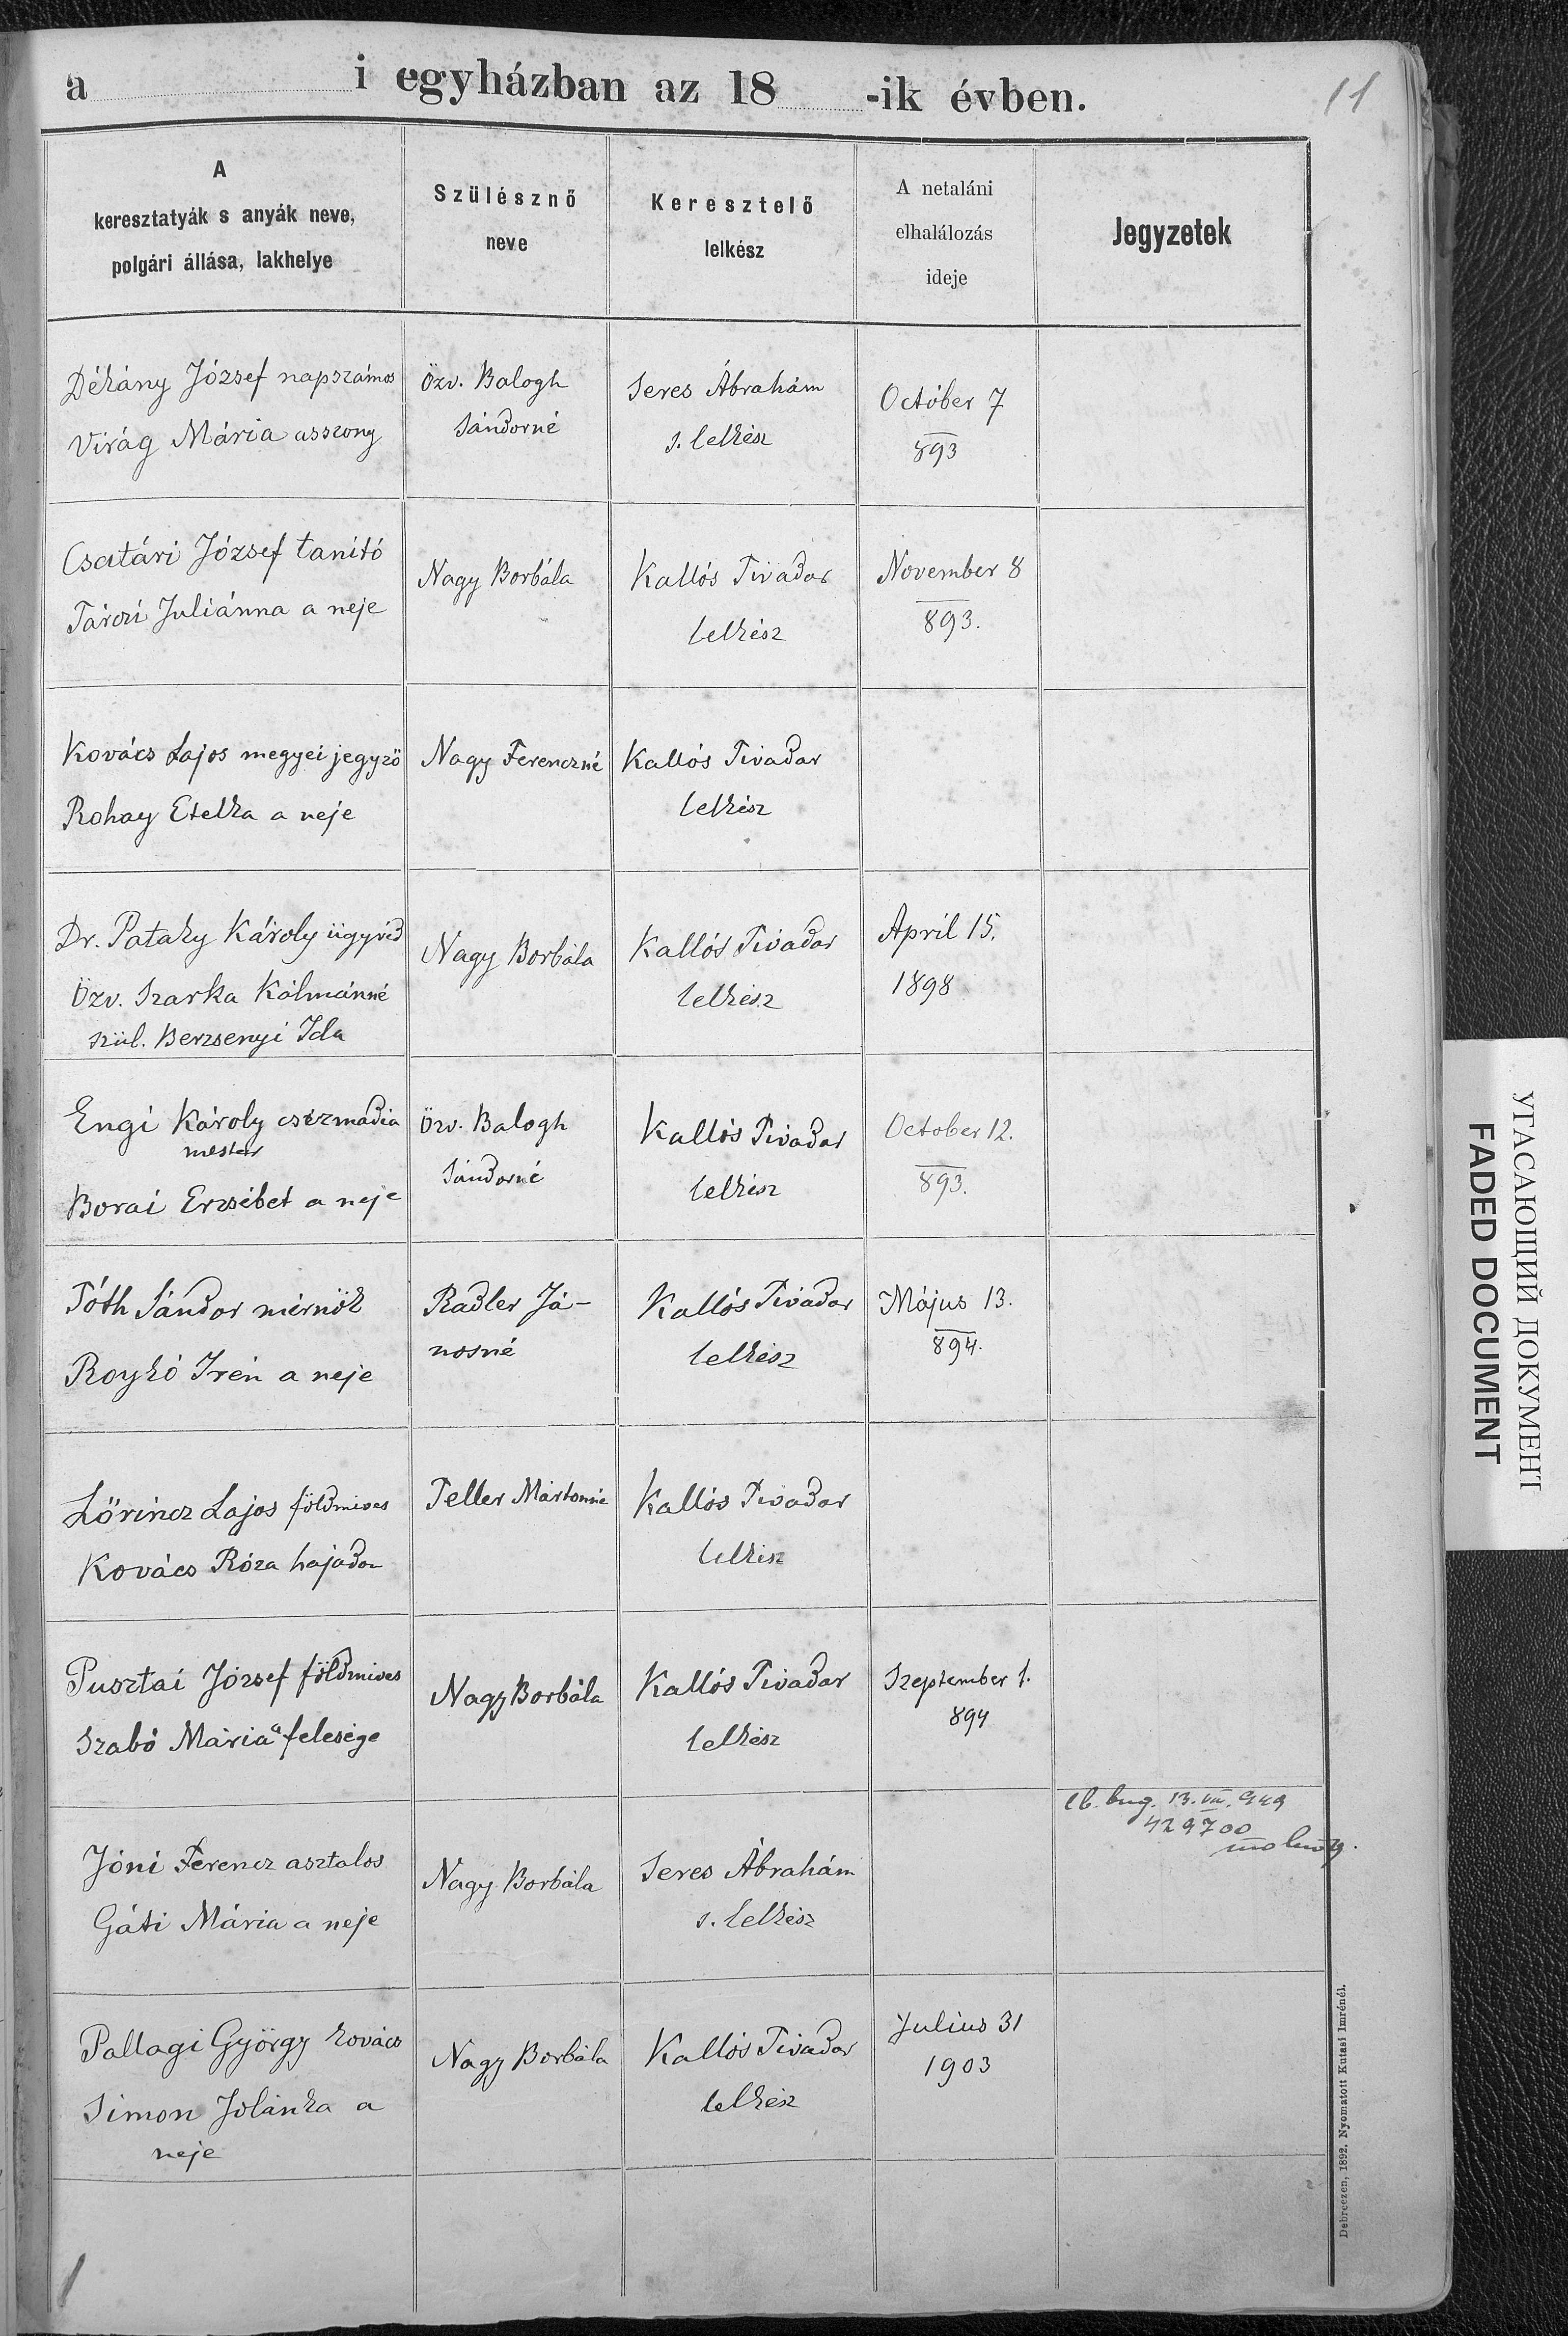 a i egyházban az 18 -ik évben.
11
A
keresztatyák s anyák neve,
polgári állása, lakhelye
Szülésznő
neve
Keresztelő
lelkész
A netaláni
elhalálozás
ideje
Jegyzetek
Dékány József napszámos
Virág Mária asszony
Özv. Balogh
Sándorné
Seres Ábrahám
s. lelkész
Octóber 7
893
Csatári József tanító
Tárczi Juliánna a neje
Nagy Borbála
Kallós Tivadar
lelkész
November 8
893.
Kovács Lajos megyei jegyző
Rohay Etelka a neje
Nagy Ferenczné
Kallós Tivadar
lelkész
Dr. Pataky Károly ügyvéd
Özv. Szarka Kálmánné
szül. Berzsenyi Ida
Nagy Borbála
Kallós Tivadar
lelkész
April 15.
1898
Engi Károly csizmadia
mester
Borai Erzsébet a neje
Özv. Balogh
Sándorné
Kallós Tivadar
lelkész
October 12.
893.
Tóth Sándor mérnök
Roykó Irén a neje
Radler Já-
nosné
Kallós Tivadar
lelkész
Május 13.
894.
Lőrincz Lajos földmives
Kovács Róza hajadon
Teller Mártonné
Kallós Tivadar
lelkész
Pusztai József földmives
Szabó Mária a felesége
Nagy Borbála
Kallós Tivadar
lelkész
Szeptember 1.
894
13. VIII. 949
429700
Jóni Ferencz asztalos
Gáti Mária a neje
Nagy Borbála
Seres Ábrahám
s. lelkész
Pallagi György kovács
Simon Jolánka a
neje
Nagy Borbála
Kallós Tivadar
lelkész
Julius 31
1903
Debreczen, 1892. Nyomatott Kutasi Imrénél.
УГАСАЮЩИЙ ДОКУМЕНТ
FADED DOCUMENT